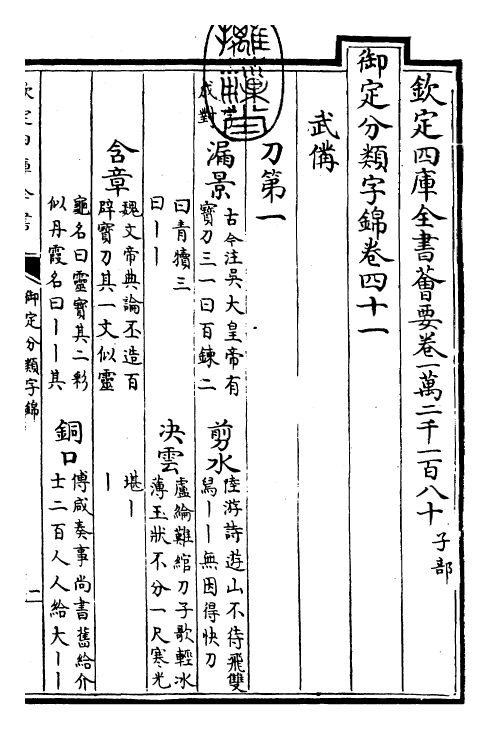 欽定四庫全書薈要卷一萬二千一百八十 子部
御定分類字錦卷四十一
武備
刀第一
成對
漏景
古今注吳大皇帝有
寶刀三一曰百鍊二
曰青犢三
曰丨丨
剪水
陸游詩遊山不待飛雙
舄丨丨無因得快刀
決雲
盧綸難綰刀子歌輕冰
薄玉狀不分一尺寒光
堪丨
丨
含章
魏文帝典論丕造百
辟寶刀其一文似靈
龜名曰靈寶其二彩
似丹霞名曰丨丨其
銅口
傅咸奏事尚書舊給介
士二百人人給大丨丨
欽定四庫全書
御定分類字錦
摛藻堂